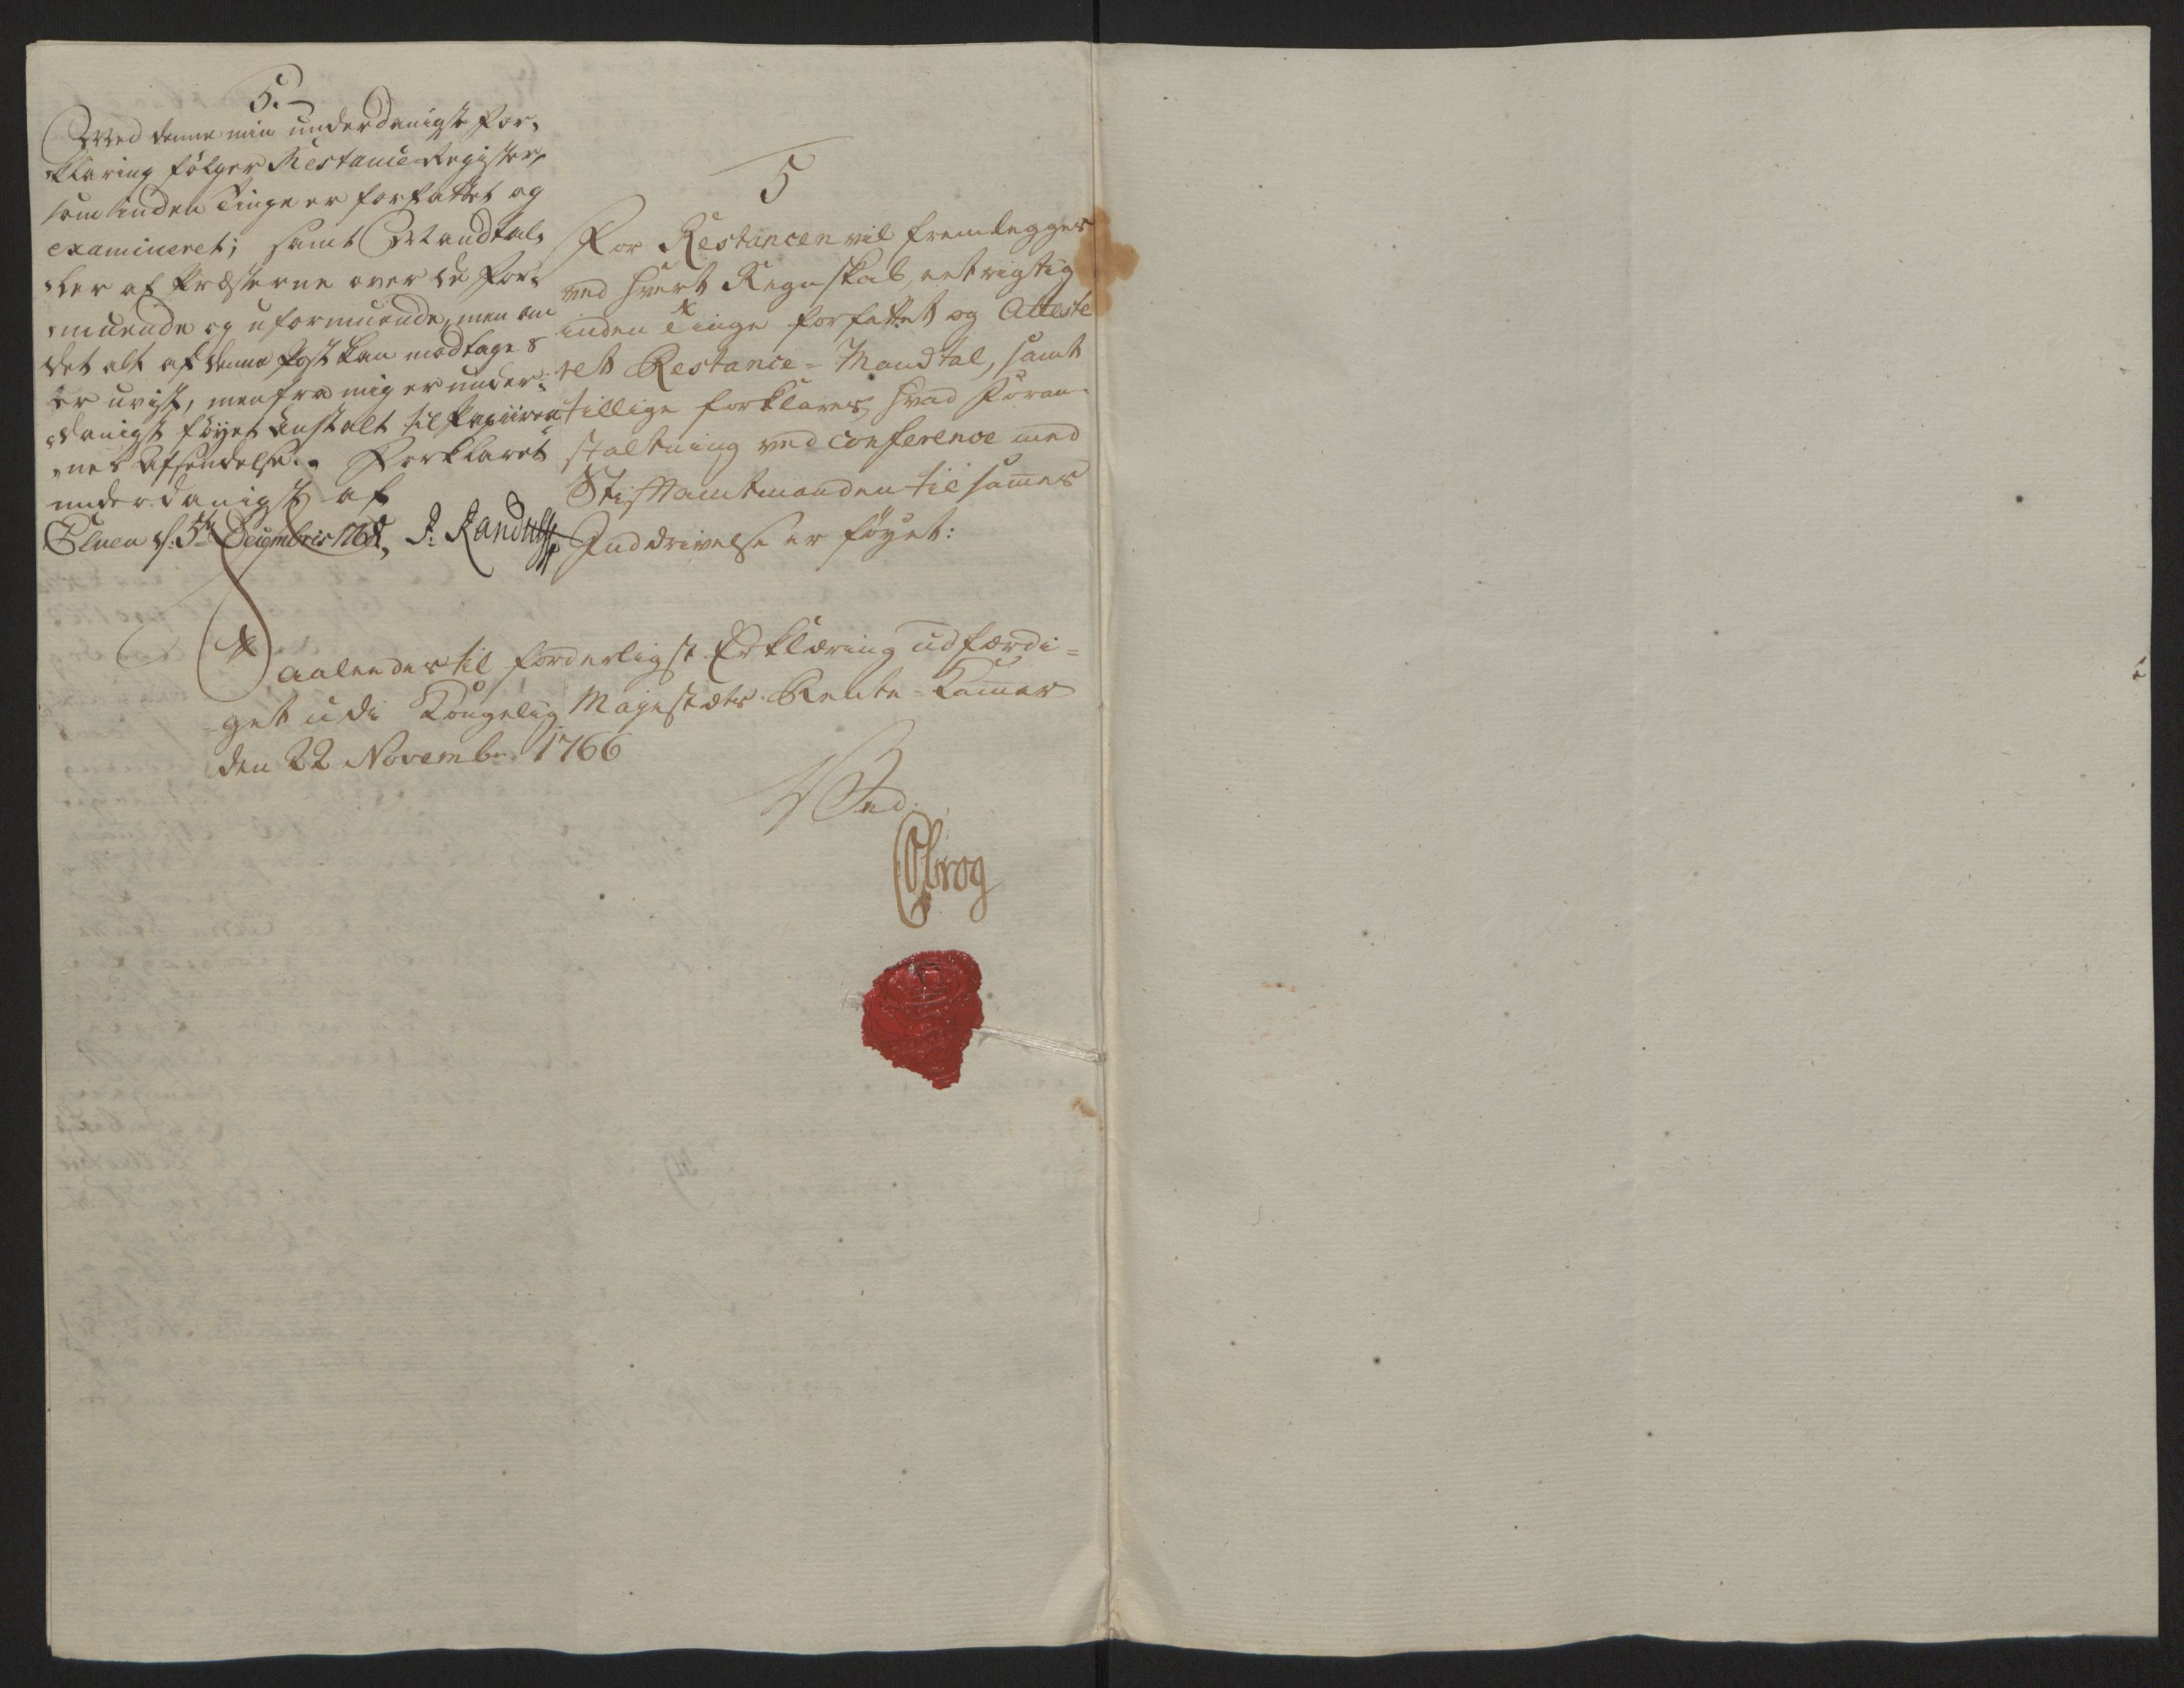 5.
Med denne min underdanigste For,
klaring følger Restance-Register,
som inden Tinge er forfattet og
examineret; samt Mandtal,
ler af Præsterne over de For,
muende og uformuende, men om
det alt af denne Post kan modtages
er uvist, men fra mig er under,
danigst føyet Anstalt til Papiirer,
nes Afsendelse. Forklaret
underdanigst af
d: 5te Decembris 1768, J: Randulff
5
For Restancen vil fremlegges
ved hvert Regnskab, eet rigtig
inden Tinge forfattet og Atteste
ret Restance-Mandtal, samt
tillige forklares, hvad Foran-
staltning ved conference med
Stiftamtmanden til sammes
Inddrivelse er føyet:
Paalendes til forderligst Erklæring udfærdi=
get udi Kongelig Majestæts Rente-Kammer
den 22 Novembr: 1766
Ved